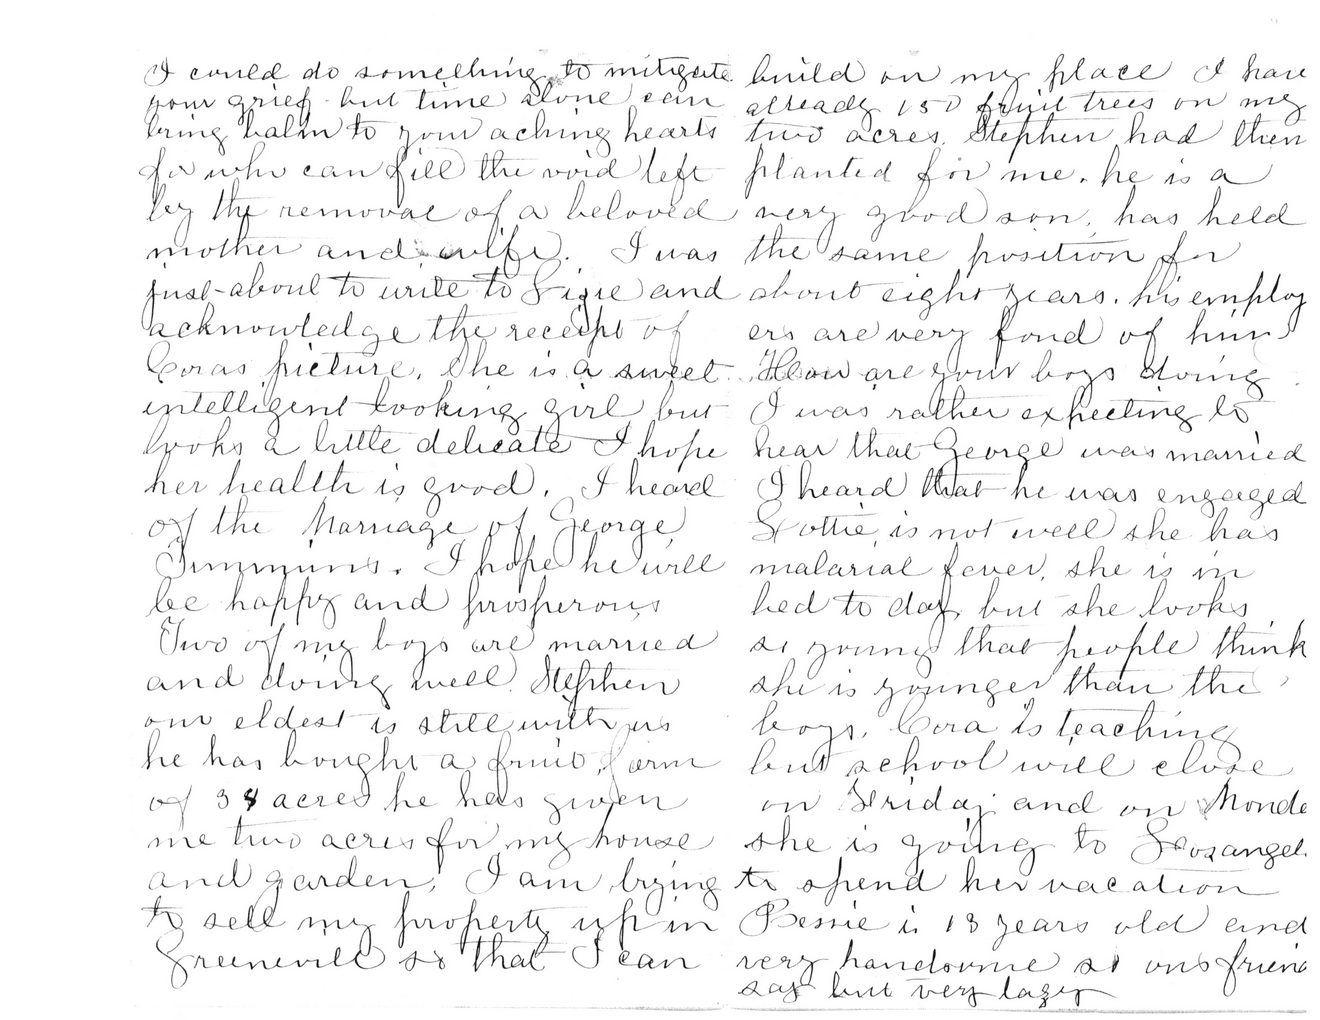 I could do something to mitigate
your grief but time alone can
bring balm to your aching hearts
for who can fill the void left
by the removal of a beloved
mother and wife. I was
just about to write to Lizie and
acknowledge the receipt of
Coras picture. She is a sweet
intelligent looking girl but
looks a little delicate I hope
her health is good. I heard
of the Marriage of George
Timmins. I hope he will
be happy and prosperous
Two of my boys are married
and doing well. Stephen
our eldest is still with us
he has bought a fruit farm
of 38 acres he has given
me two acres for my house
and garden. I am trying
to sell my property up in
Greeneville so that I can
build on my place I have
already 150 fruit trees on my
two acres. Stephen had them
planted for me. he is a
very good son, has held
the same position for
about eight years. his employ
ers are very fond of him
How are your boys doing
I was rather expecting to
hear that George was married
I heard that he was engaged
Lottie is not well she has
malarial fever, she is in
bed to day, but she looks
so young that people think
she is younger than the
boys. Cora is teaching
but school will close
on Friday and on Monda
she is going to Los angel
to spend her vacation
Bessie is 13 years old and
very handsome so our friend
say but very lazy